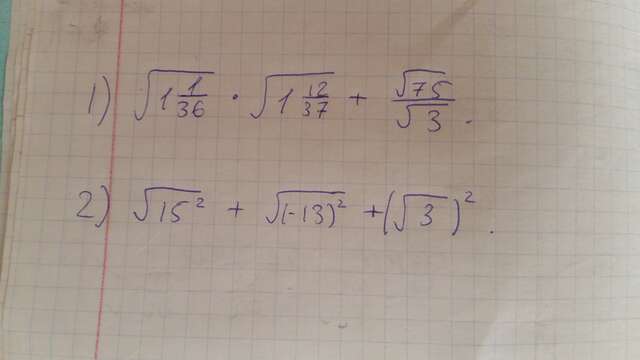 1) √(1 1/36) · √(1 12/37) + √75/√3.
2) √(15²) + √((-13)²) + (√3)².